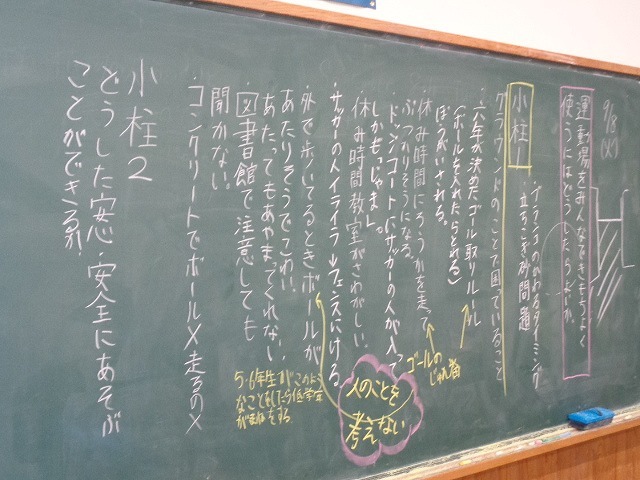 9/8(火)
運動場をみんなできもちよく
使うにはどうしたらよいか。
・ブランコのかわるタイミング
・立ちこぎ砂問題
小柱1
グラウンドのことで困っていること
・六年が決めたゴール取りルール
(ボールを入れたらとれる)
ぼうがいされる。
・休み時間にろうかを走って
ぶつかりそうになる。
・ドッジコートにサッカーの人が入って
しかも「じゃま」。
・休み時間教室がさわがしい。
・サッカーの人イライラ→フェンスにける。
・外で歩いてるときボールが
あたりそうでこわい。
あたってもあやまってくれない
・図書館で注意しても
聞かない。
・コンクリートでボール×走るの×
小柱2
どうした安心・安全にあそぶ
ことができるか。
ゴールの
じゅん番
人のことを
考えない
5・6年生がこのよう
なことをしたら低学年
がまねをする。